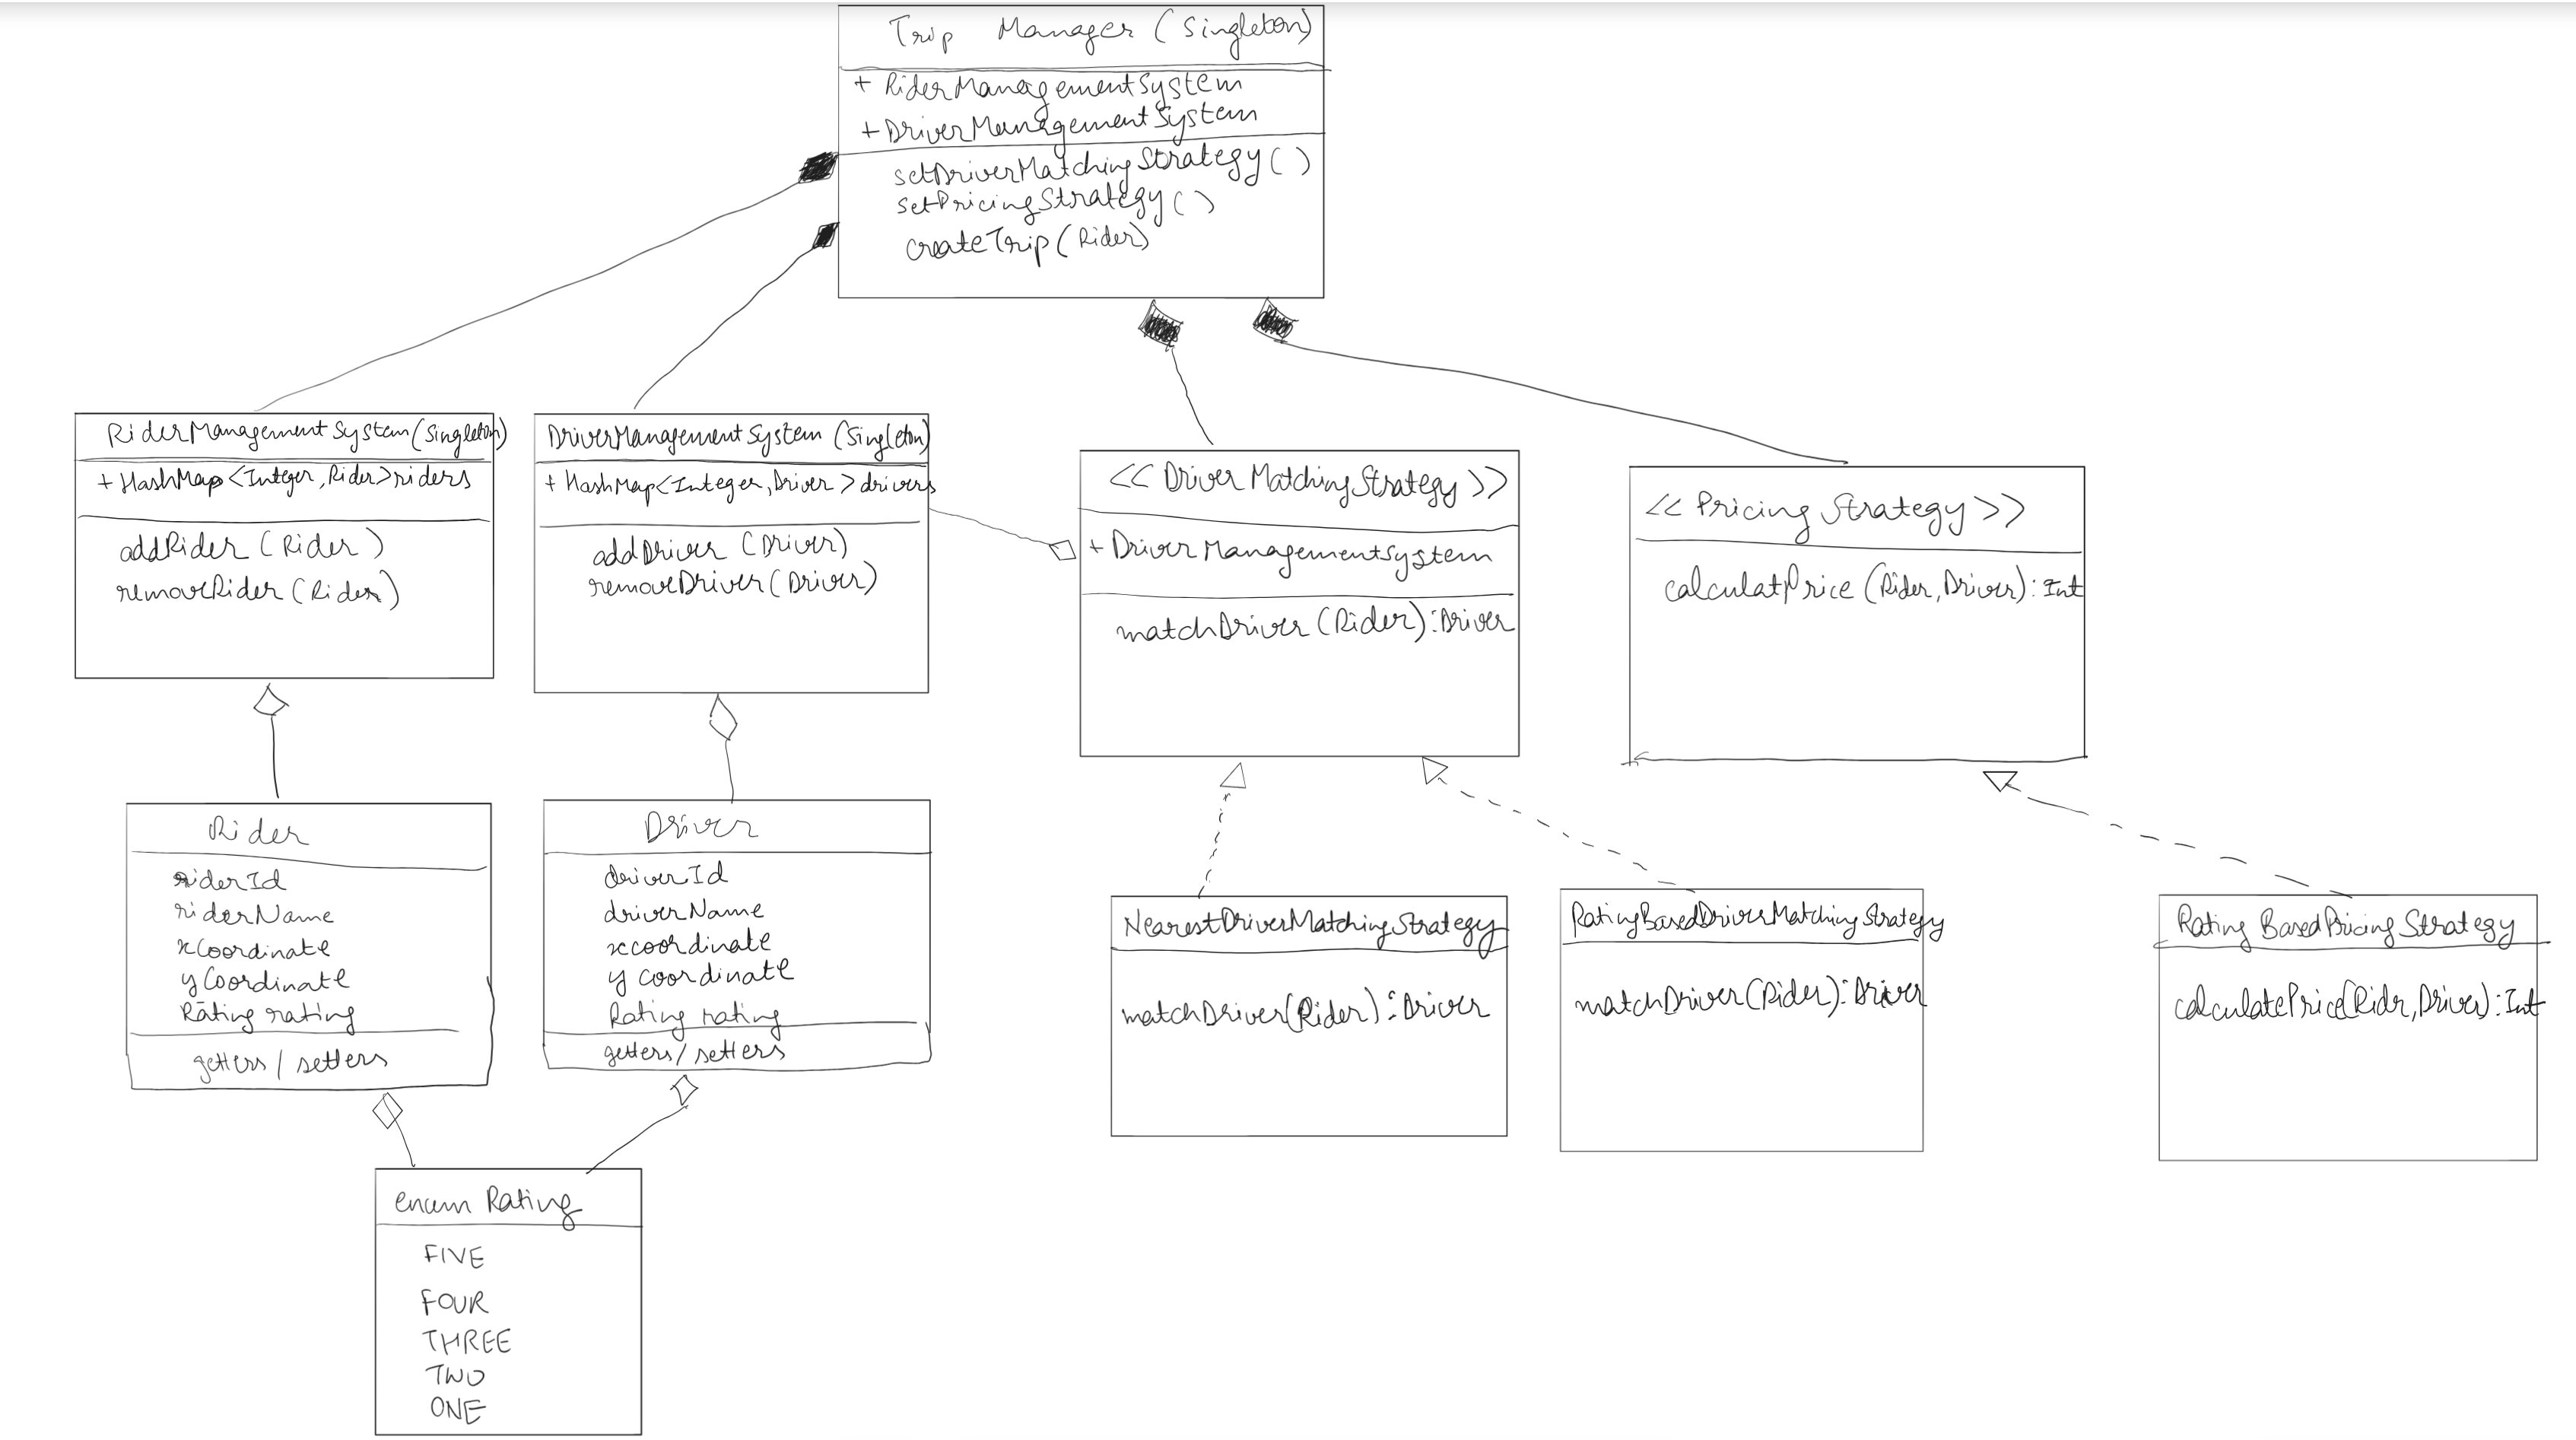 Trip Manager (Singleton)
+ RiderManagementSystem
+ DriverManagementSystem
setDriverMatchingStrategy( )
setPricingStrategy( )
createTrip(Rider)
RiderManagementSystem(Singleton)
+ HashMap<Integer,Rider>riders
addRider (Rider)
removeRider (Rider)
DriverManagementSystem (Singleton)
+ HashMap<Integer,Driver>drivers
addDriver (Driver)
removeDriver(Driver)
<< DriverMatchingStrategy >>
+ DriverManagementSystem
matchDriver(Rider):Driver
<< Pricing Strategy >>
calculatPrice (Rider,Driver):Int
Rider
riderId
riderName
xCoordinate
yCoordinate
Rating rating
getters / setters
Driver
driverId
driverName
xcoordinate
y coordinate
Rating rating
getters / setters
NearestDriverMatchingStrategy
matchDriver(Rider):Driver
RatingBasedDriverMatchingStrategy
matchDriver(Rider):Driver
Rating BasedPricingStrategy
calculatePrice(Ridr,Driver):Int
enum Rating
FIVE
FOUR
THREE
TWO
ONE